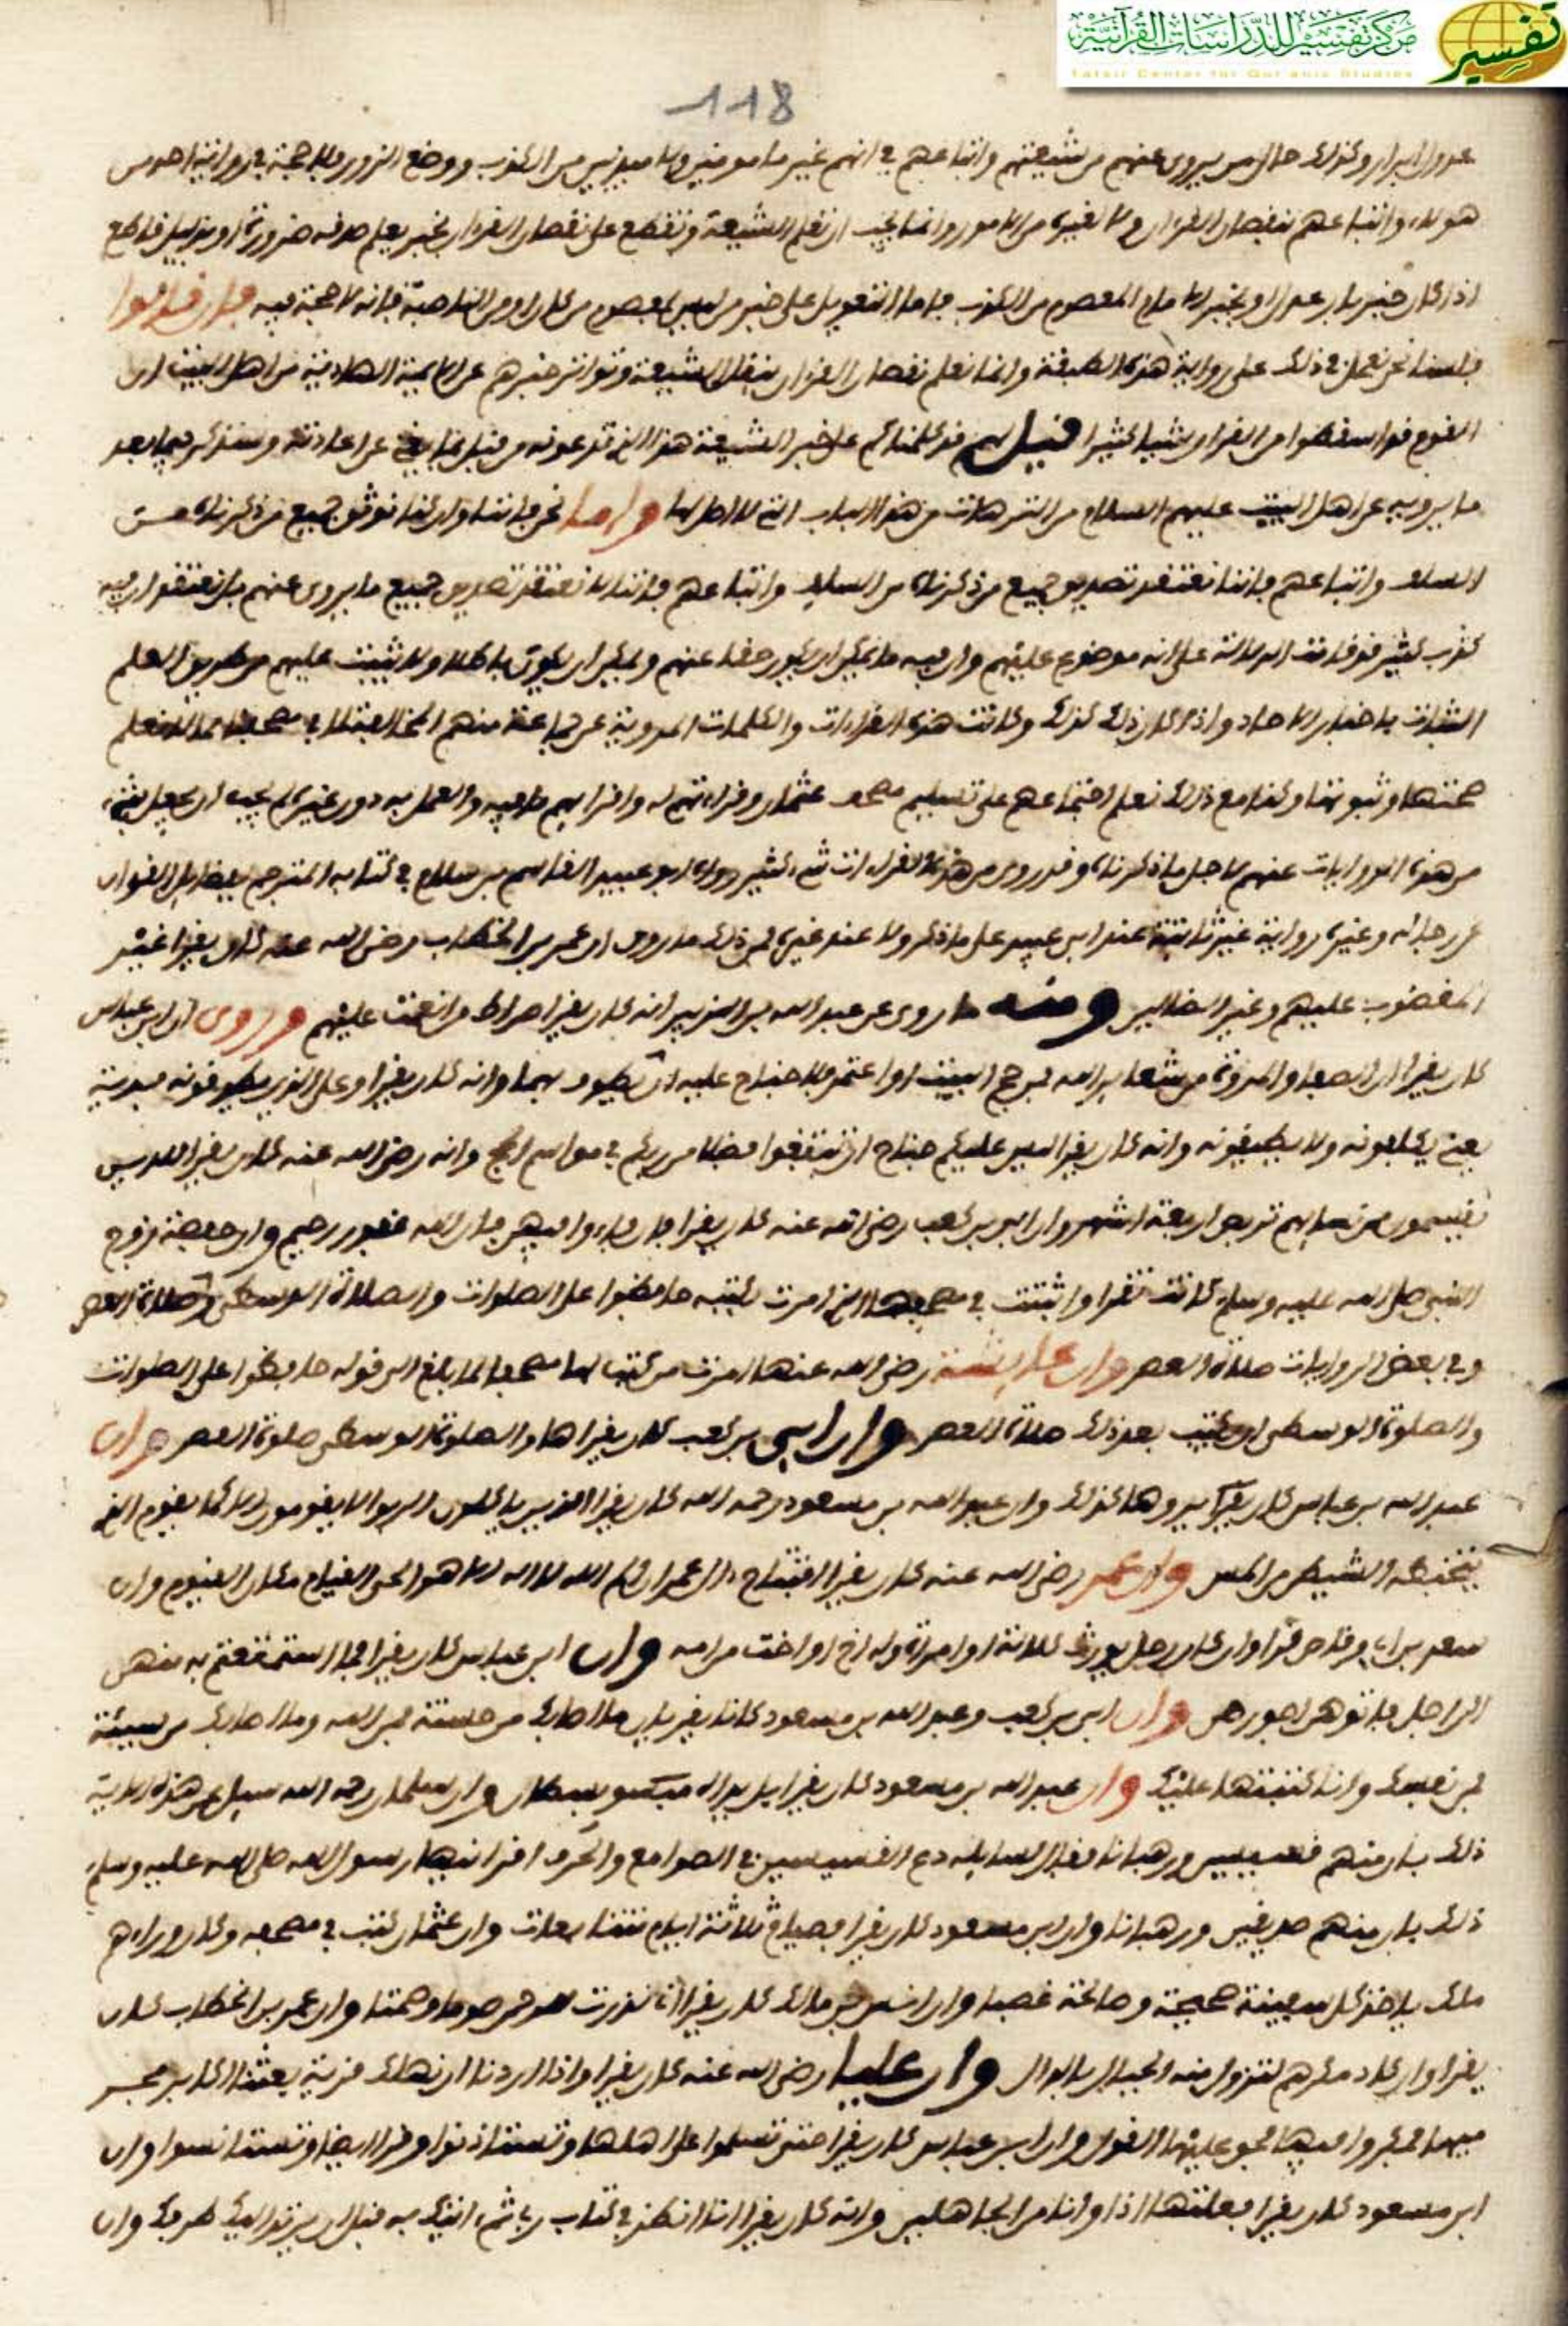 مركز تفسير للدراسات القرآنية
تفسير
Tafsir Center for Qur'anic Studies
118
عدول ابرار وكذلك حال من يروى عنهم من شيعتهم واتباعهم في انهم غير مامونين ولا مبرئين من الكذب ووضع الزور فلا حجة في رواية احد من
هولاء واتباعهم نقصان القرءان ولا لغيره من الامور وانما يجب ان تعلم الشيعة وتقطع على نقصان القرءان بخبر يعلم صدقه ضرورة او بدليل قاطع
اذا كان خبر بار عدل او بخبر الامام المعصوم من الكذب فاما التعويل على خبر من ليس بمعصوم من كل راو من الناصبة فانه لا حجة فيه فان قالوا
فلسنا نحن نعمل في ذلك على رواية هذه الطبقة وانما نعلم نقصان القرءان بنقل الشيعة وتواتر خبرهم عن الايمة الهادية من اهل البيت ان
القوم قد اسقطوا من القرءان شيا كثيرا قيل لهم قد كلمناكم على خبر الشيعة هذا الذي تدعونه من قبل بما يغني عن اعادته وسنذكر فيما بعد
ما يرويه عن اهل البيت عليهم السلام من الترهات في هذا الباب التي لا اصل لها واما نحن فاننا وان كنا نوثق جميع من ذكرناه من
السلف واتباعهم فاننا نعتقد تصديق جميع من ذكرناه من السلف واتباعهم فاننا لا نعتقد تصديق جميع ما يروى عنهم بل نعتقد ان فيه
كذب كثير قد قامت الدلالة على انه موضوع عليهم وان فيه ما يمكن ان يكون حقا عنهم ويمكن ان يكون باطلا ولا يثبت عليهم من طريق العلم
الثبات باخبار الاحاد واذا كان ذلك كذلك وكانت هذه القراءات والكلمات المروية عن جماعة منهم المخالفة لما في مصحفنا مما لا نعلم
صحتها وثبوتها وكنا مع ذلك نعلم اجتماعهم على تسليم مصحف عثمان وقراءتهم له واقرايهم ما فيه والعمل به دون غيره لم يجب ان نحفل بشيء
من هذه الروايات عنهم لاجل ما ذكرناه وقد روى من هذه القراءات شيء كثير رواه ابو عبيد القاسم بن سلام في كتابه المترجم بفضايل القرءان
عن رجاله وغيره رواية غير ثابتة عند ابن عبيد على ما ذكر ولا عند غيره فمن ذلك ما روى ان عمر بن الخطاب رضي الله عنه كان يقرا غير
المغضوب عليهم وغير الضالين ومنه ما روى عن عبد الله بن الزبير انه كان يقرا صراط من انعمت عليهم وروى ان ابن عباس
كان يقرا ان الصفا والمروة من شعاير الله فمن حج البيت او اعتمر فلا جناح عليه ان يطوف بهما وانه كان يقرا وعلى الذين يطوقونه فدية
يعني يكلفونه ولا يطيقونه وانه كان يقرا ليس عليكم جناح ان تبتغوا فضلا من ربكم في مواسم الحج وانه رضي الله عنه كان يقرا للذين
يقسمون من نسايهم تربص اربعة اشهر وان ابي بن كعب رضي الله عنه كان يقرا فان فاءوا فيهن فان الله غفور رحيم وان حفصة زوج
النبي صلى الله عليه وسلم كانت تقرا واثبتت في مصحفها الذي امرت بكتبه حافظوا على الصلوات والصلاة الوسطى وصلاة العصر
وفي بعض الروايات صلاة العصر وان عايشة رضي الله عنها امرت من كتب لها مصحفا لما بلغ الى قوله حافظوا على الصلوات
والصلوة الوسطى ان يكتب بعد ذلك صلاة العصر وان ابي بن كعب كان يقراها والصلوة الوسطى صلوة العصر وان
عبد الله بن عباس كان يقرا ويروها كذلك وان عبد الله بن مسعود رحمه الله كان يقرا الذين ياكلون الربوا لا يقومون الا كما يقوم الذي
يتخبطه الشيطن من المس وان عمر رضي الله عنه كان يقرا افتتاح ءال عمران الم الله لا اله الا هو الحي القيام مكان القيوم وان
سعد بن ابي وقاص قرا وان كان رجل يورث كلالة او امراة وله اخ او اخت من امه وان ابن عباس كان يقرا فما استمتعتم به منهن
الى اجل فاتوهن اجورهن وان ابي بن كعب وعبد الله بن مسعود كانا يقريان ما اصابك من حسنة فمن الله وما اصابك من سيئة
فمن نفسك وانا كتبتها عليك وان عبد الله بن مسعود كان يقرا بل يداه مبسوطتان وان سلمان رحمه الله سيل عن هذه الاية
ذلك بان منهم قسيسين ورهبانا فقال للسايله دع القسيسين في الصوامع والخرب اقرانيها رسول الله صلى الله عليه وسلم
ذلك بان منهم صديقين ورهبانا وان ابن مسعود كان يقرا فصيام ثلاثة ايام متتابعات وان عثمان كتب في مصحفه وكان وراءهم
ملك ياخذ كل سفينة صحيحة وصالحة غصبا وان انس بن مالك كان يقرا اني نذرت للرحمن صوما وصمتا وان عمر بن الخطاب كان
يقرا وان كاد مكرهم لتزول منه الجبال بالدال وان عليا رضي الله عنه كان يقرا واذا اردنا ان نهلك قرية بعثنا اكابر مجر
ميها فمكروا فيها فحق عليها القول وان ابن عباس كان يقرا حتى تسلموا على اهلها وتستاذنوا وقرا ايضا وتستانسوا وان
ابن مسعود كان يقرا فعلتها اذا وانا من الجاهلين وانه كان يقرا انا انظر في كتاب ربي ثم ءاتيك به قبل ان يرتد اليك طرفك وان